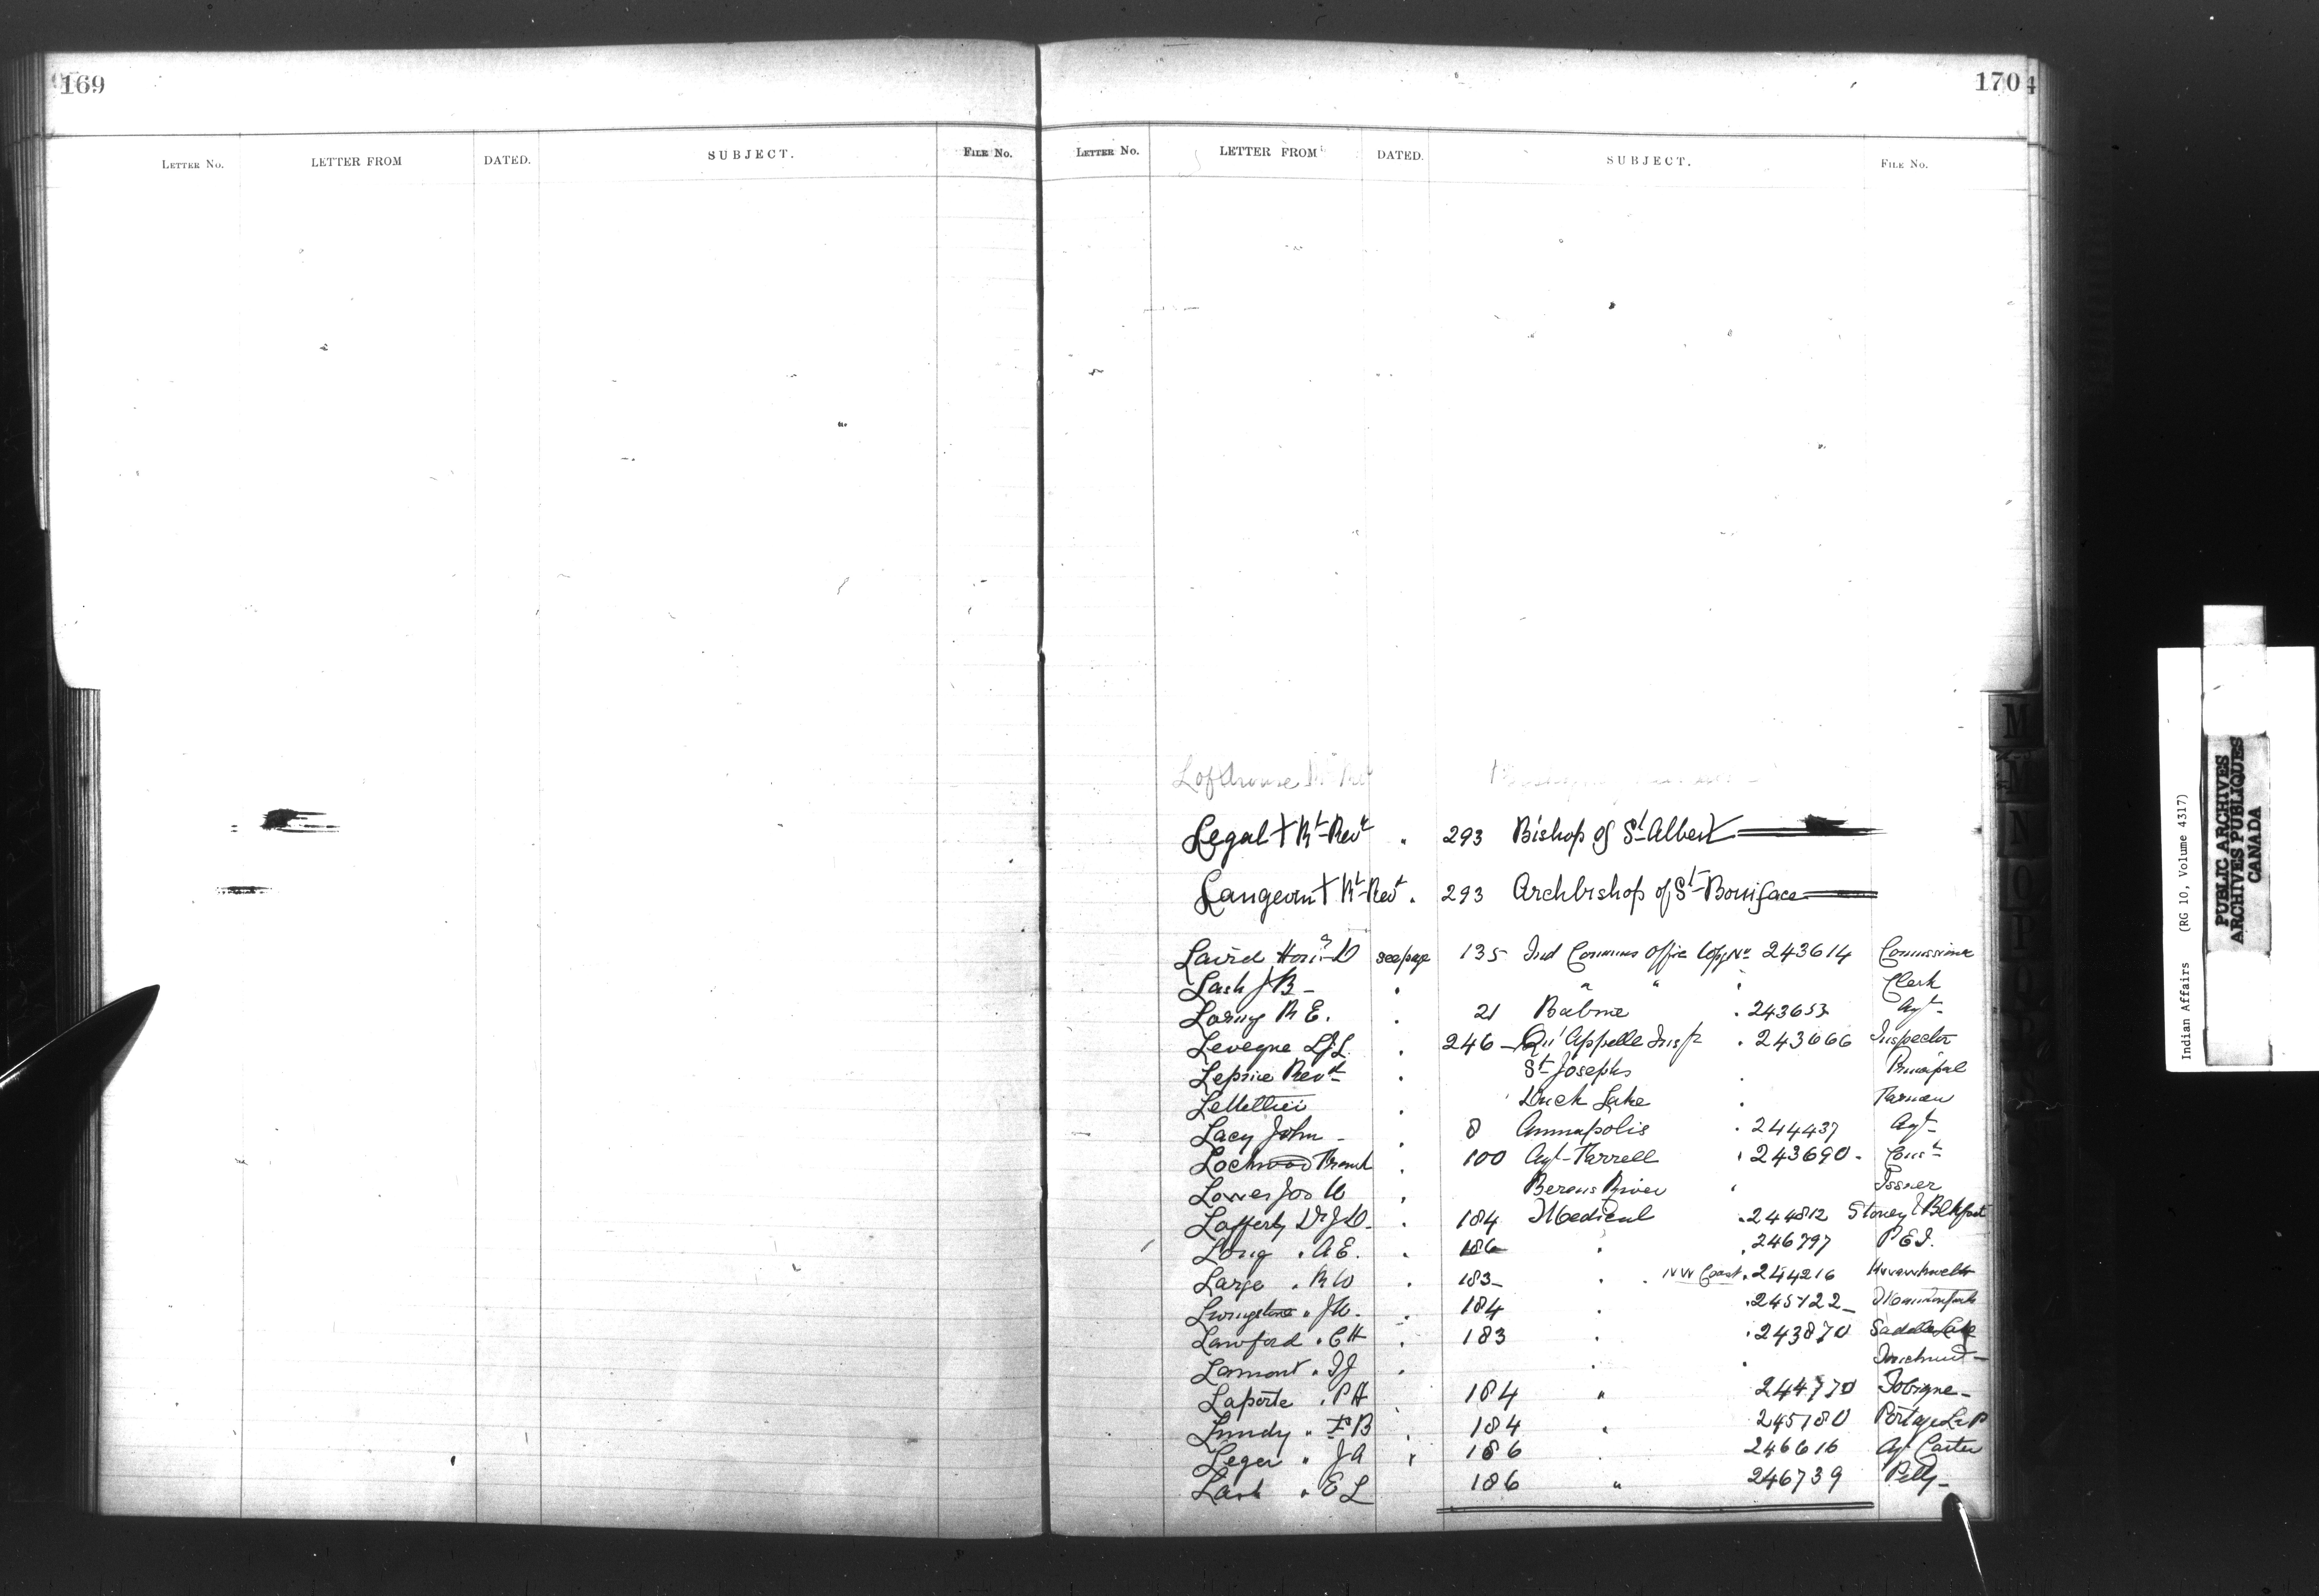 169
LETTER NO. LETTER FROM DATED. SUBJECT. FILE NO.
170
LETTER NO. LETTER FROM DATED. SUBJECT. FILE NO.
Lofthouse Rev
Legal + Rt Revd " 293 Bishop of St Albert
Langevin + Rt Revd . 293 Archbishop of St Boniface
Laird Hon. D see page 135 Ind Commrs Office Copy No 243614 Commissioner
Lash J B - " " " Clerk
Loring R E. . 21 Babine . 243653 Agt
Leveque L.J.L. . 246 - Qu'Appelle Insp . 243666 Inspector
Leprice Revd . St Josephs . Principal
LeMettier . Duck Lake . Farmer
Lacy John - . 8 Annapolis . 244437 Agt
Lockwood . 100 Agt - Farrell . 243690 - Const
Lowes Jos W . Berens River " Issuer
Lafferty Dr J D. . 184 Medical . 244812 Stoney & Blkfoot
Long . A E. . 186 . . 246797 P E I.
Large . R W . 183 - . . NW Coast . 244216
Livingstone " J W. . 184 . . 245122 -
Lawford . C H . 183 . . 243870 Saddle Lake
Lamont . I J . . .
Laporte . P H 184 " 244770 Tobique -
Lundy " F B . 184 . 245180 Portage La P
Leger " J A " 186 . 246616 Agt Carter
Lash . E L 186 " 246739 Pelly -
M
M
N
O
P
Indian Affairs (RG 10, Volume 4317)
PUBLIC ARCHIVES
ARCHIVES PUBLIQUES
CANADA